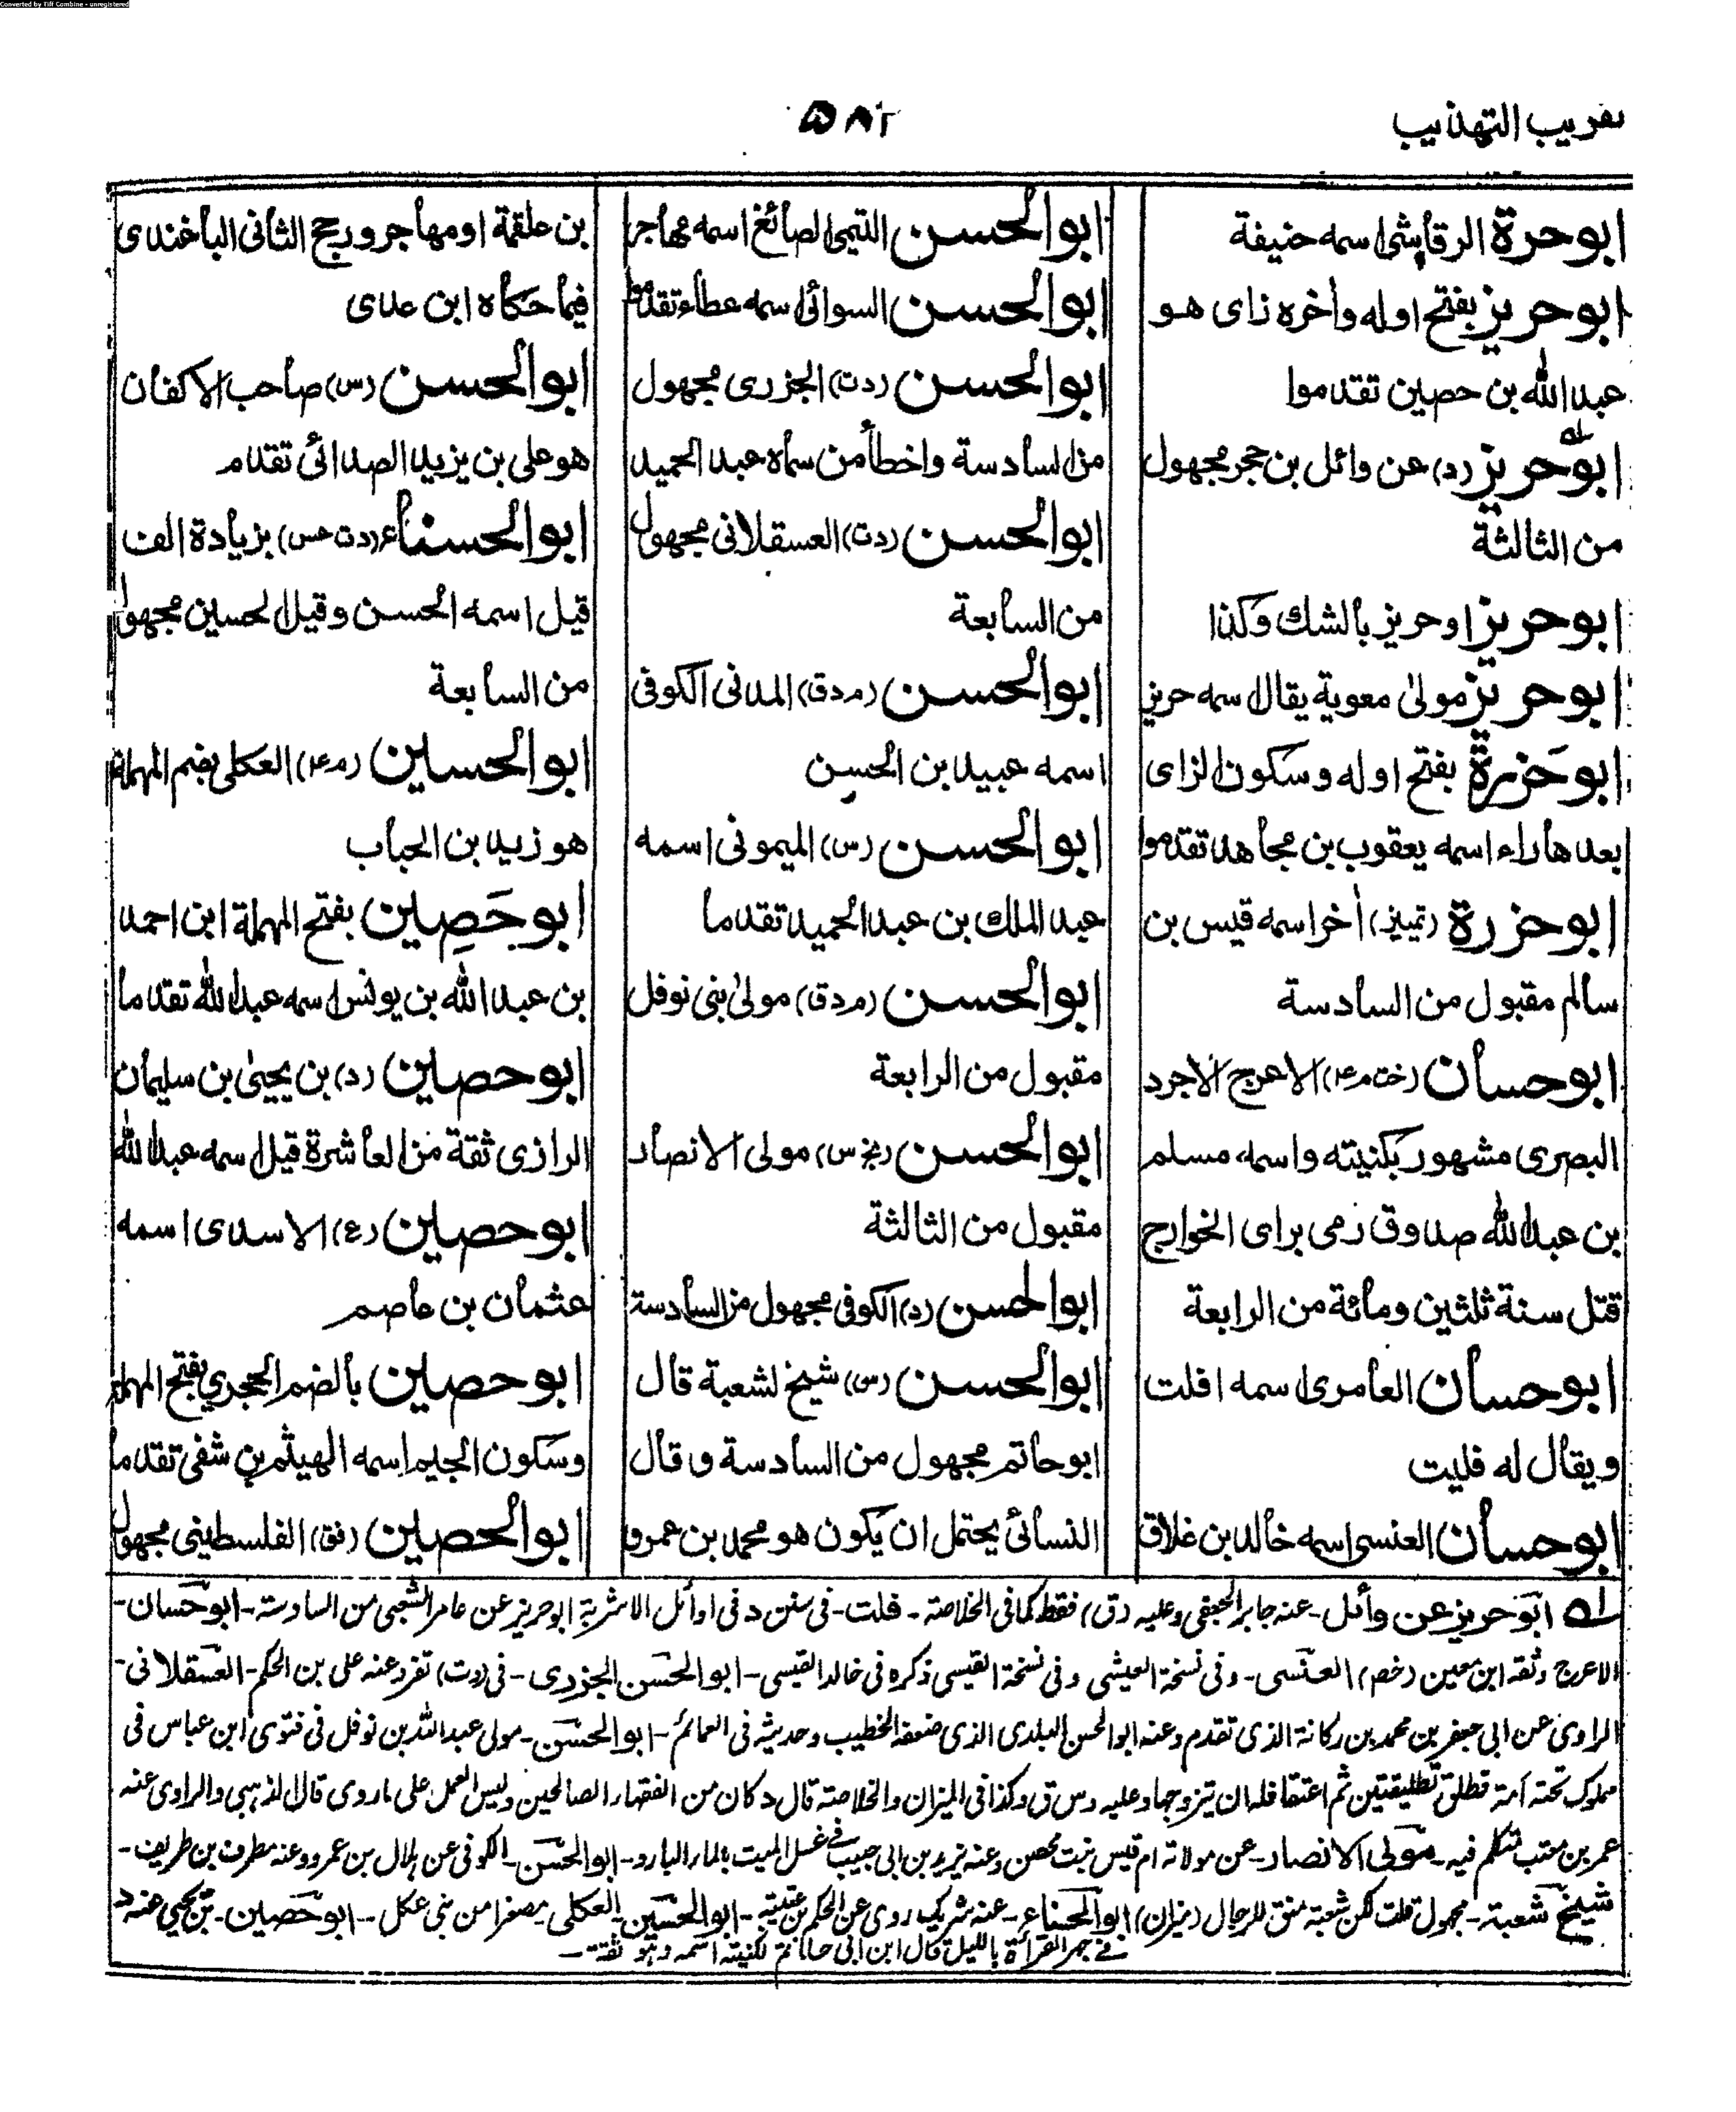 Converted by Tiff Combine - unregistered
تقريب التهذيب
۵۸۲
ابوحرة الرقاشي اسمه حنيفة
ابوحريز بفتح اوله وأخره زاى هو
عبد الله بن حصين تقدموا
ابوحريز (د) عن وائل بن حجر مجهول
من الثالثة
ابوحريز اوحريز بالشك وكذا
ابوحريز مولى معوية يقال اسمه حريز
ابوحَزرة بفتح اوله وسكون الزاى
بعدها راء اسمه يعقوب بن مجاهد تقدموا
ابوحزرة (تمييز) أخر اسمه قيس بن
سالم مقبول من السادسة
ابوحسان (خت م ۴) الاعرج الاجرد
البصرى مشهور بكنيته واسمه مسلم
بن عبد الله صدوق رمى براى الخوارج
قتل سنة ثلثين ومائة من الرابعة
ابوحسان العامرى اسمه افلت
ويقال له فليت
ابوحسان العنسى اسمه خالد بن غلاق
ابوالحسن التيمى الصائغ اسمه مهاجر
ابوالحسن السوائى اسمه عطاء تقدموا
ابوالحسن (دت) الجزرى مجهول
من السادسة واخطأ من سماه عبد الحميد
ابوالحسن (دت) العسقلانى مجهول
من السابعة
ابوالحسن (م د ق) المدنى الكوفى
اسمه عبيد بن الحسن
ابوالحسن (س) الميمونى اسمه
عبد الملك بن عبد الحميد تقدما
ابوالحسن (م د ق) مولى بنى نوفل
مقبول من الرابعة
ابوالحسن (بخ س) مولى الانصار
مقبول من الثالثة
ابوالحسن (د) الكوفى مجهول من السادسة
ابوالحسن (س) شيخ لشعبة قال
ابوحاتم مجهول من السادسة وقال
النسائى يحتمل ان يكون هو محمد بن عمرو
بن علقمة او مهاجر ورجح الثانى الباغندى
فيما حكاه ابن عدى
ابوالحسن (س) صاحب الاكفان
هو على بن يزيد الصدائى تقدم
ابوالحسناء (دت عس) بزيادة الف
قيل اسمه الحسن وقيل الحسين مجهول
من السابعة
ابوالحسين (م ۴) العكلى بضم المهملة
هو زيد بن الحباب
ابوحَصِين بفتح المهملة ابن احمد
بن عبد الله بن يونس اسمه عبد الله تقدما
ابوحصين (د) بن يحيى بن سليمان
الرازى ثقة من العاشرة قيل اسمه عبد الله
ابوحصين (ع) الاسدى اسمه
عثمان بن عاصم
ابوحصين بالضم الحجري بفتح المهملة
وسكون الجيم اسمه الهيثم بن شفى تقدما
ابوالحصين (فق) الفلسطينى مجهول
له ابوحريز عن وائل - عنه جابر الجعفى وعليه (دق) فقط كما فى الخلاصة - قلت - فى سنن د فى اوائل الاشربة ابوحريز عن عامر الشعبى من السادسة - ابوحسان -
الاعرج وثقه ابن معين (خصم) العنسى - وفى نسخة العيشى وفى نسخة القيسى ذكره فى خالد القيسى - ابوالحسن الجزرى - فى (دت) تفرد عنه على بن الحكم - العسقلانى -
الراوى عن ابى جعفر بن محمد بن ركانة الذى تقدم وعنه ابوالحسن البلدى الذى ضعفه الخطيب وحديثه فى العمائم - ابوالحسن - مولى عبد الله بن نوفل فى فتوى ابن عباس فى
مملوك تحته أمة فطلق تطليقتين ثم اعتقا فله ان يتزوجها وعليه دس ق وكذا فى الميزان والخلاصة قال د كان من الفقهاء الصالحين وليس العمل على ماروى قال الذهبى والراوى عنه
عمر بن معتب تتكلم فيه - مولى الانصار - عن مولاته ام قيس بنت محصن وعنه يزيد بن ابى حبيب فى غسل الميت بالماء البارد - ابوالحسن - الكوفى عن هلال بن عمرو وعنه مطرف بن طريف -
شيخ شعبة - مجهول قلت لكن شعبة منق للرجال (ميزان) ابوالحسناء - عنه شريك روى عن الحكم بن عتيبة - ابوالحسين العكلى - مصغرا من بنى عكل - ابوحصين - بن يحيى عنه د
فى جهر القرأة بالليل قال ابن ابى حاتم كنيته اسمه وهو ثقة -